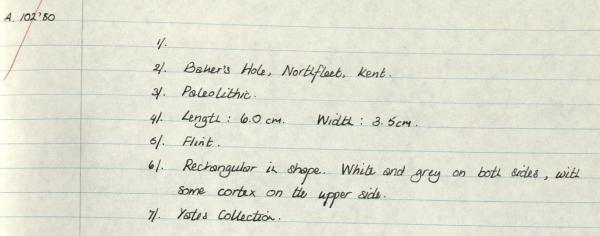 A. 102'80
1/.
2/. Baker's Hole, Northfleet, Kent.
3/. Paleolithic.
4/. Length : 6.0 cm. Width : 3.5cm.
5/. Flint.
6/. Rectangular in shape. White and grey on both sides, with
some cortex on the upper side.
7/. Yates Collection.